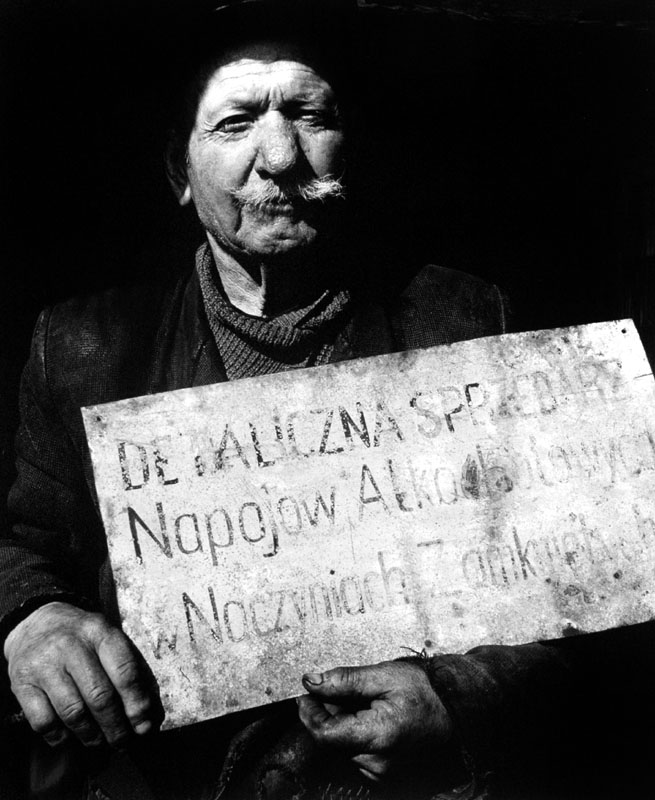 DETALICZNA SPRZEDARZ
Napojow Alkocholowych
w Naczyniach Zamkniętych